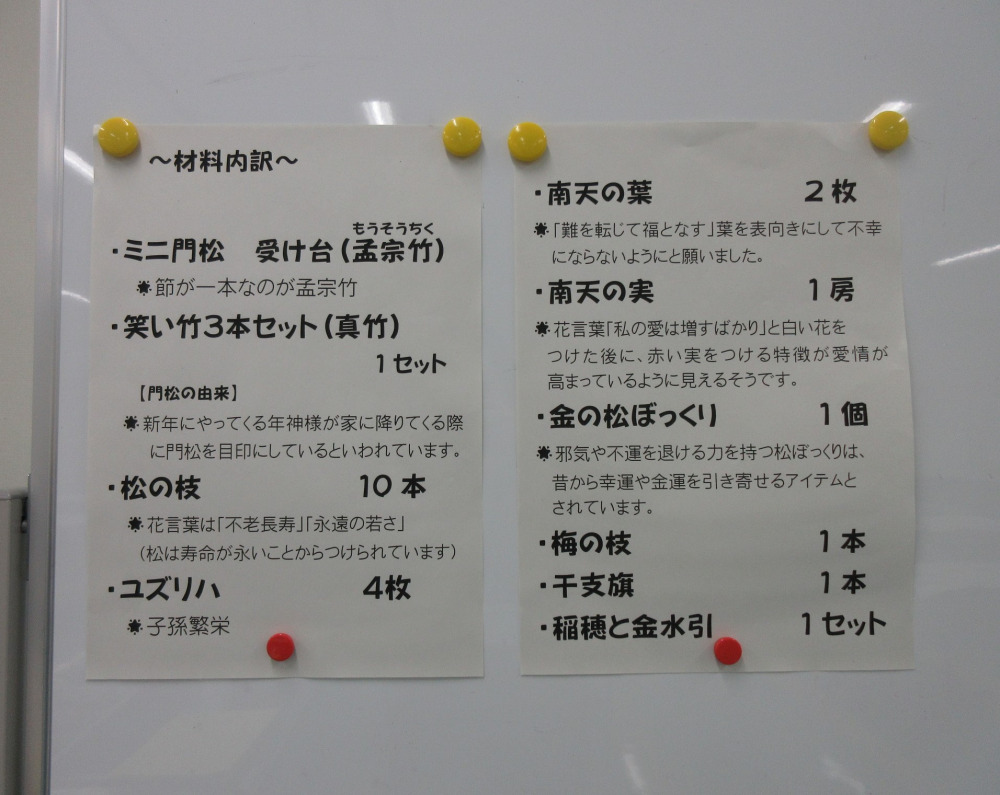 ～材料内訳～
もうそうちく
・ミニ門松　受け台（孟宗竹）
✹節が一本なのが孟宗竹
・笑い竹３本セット（真竹）
１セット
【門松の由来】
✹新年にやってくる年神様が家に降りてくる際
に門松を目印にしているといわれています。
・松の枝　１０本
✹花言葉は「不老長寿」「永遠の若さ」
（松は寿命が永いことからつけられています）
・ユズリハ　４枚
✹子孫繁栄
・南天の葉　２枚
✹「難を転じて福となす」葉を表向きにして不幸
にならないようにと願いました。
・南天の実　１房
✹花言葉「私の愛は増すばかり」と白い花を
つけた後に、赤い実をつける特徴が愛情が
高まっているように見えるそうです。
・金の松ぼっくり　１個
✹邪気や不運を退ける力を持つ松ぼっくりは、
昔から幸運や金運を引き寄せるアイテムと
されています。
・梅の枝　１本
・干支旗　１本
・稲穂と金水引　１セット